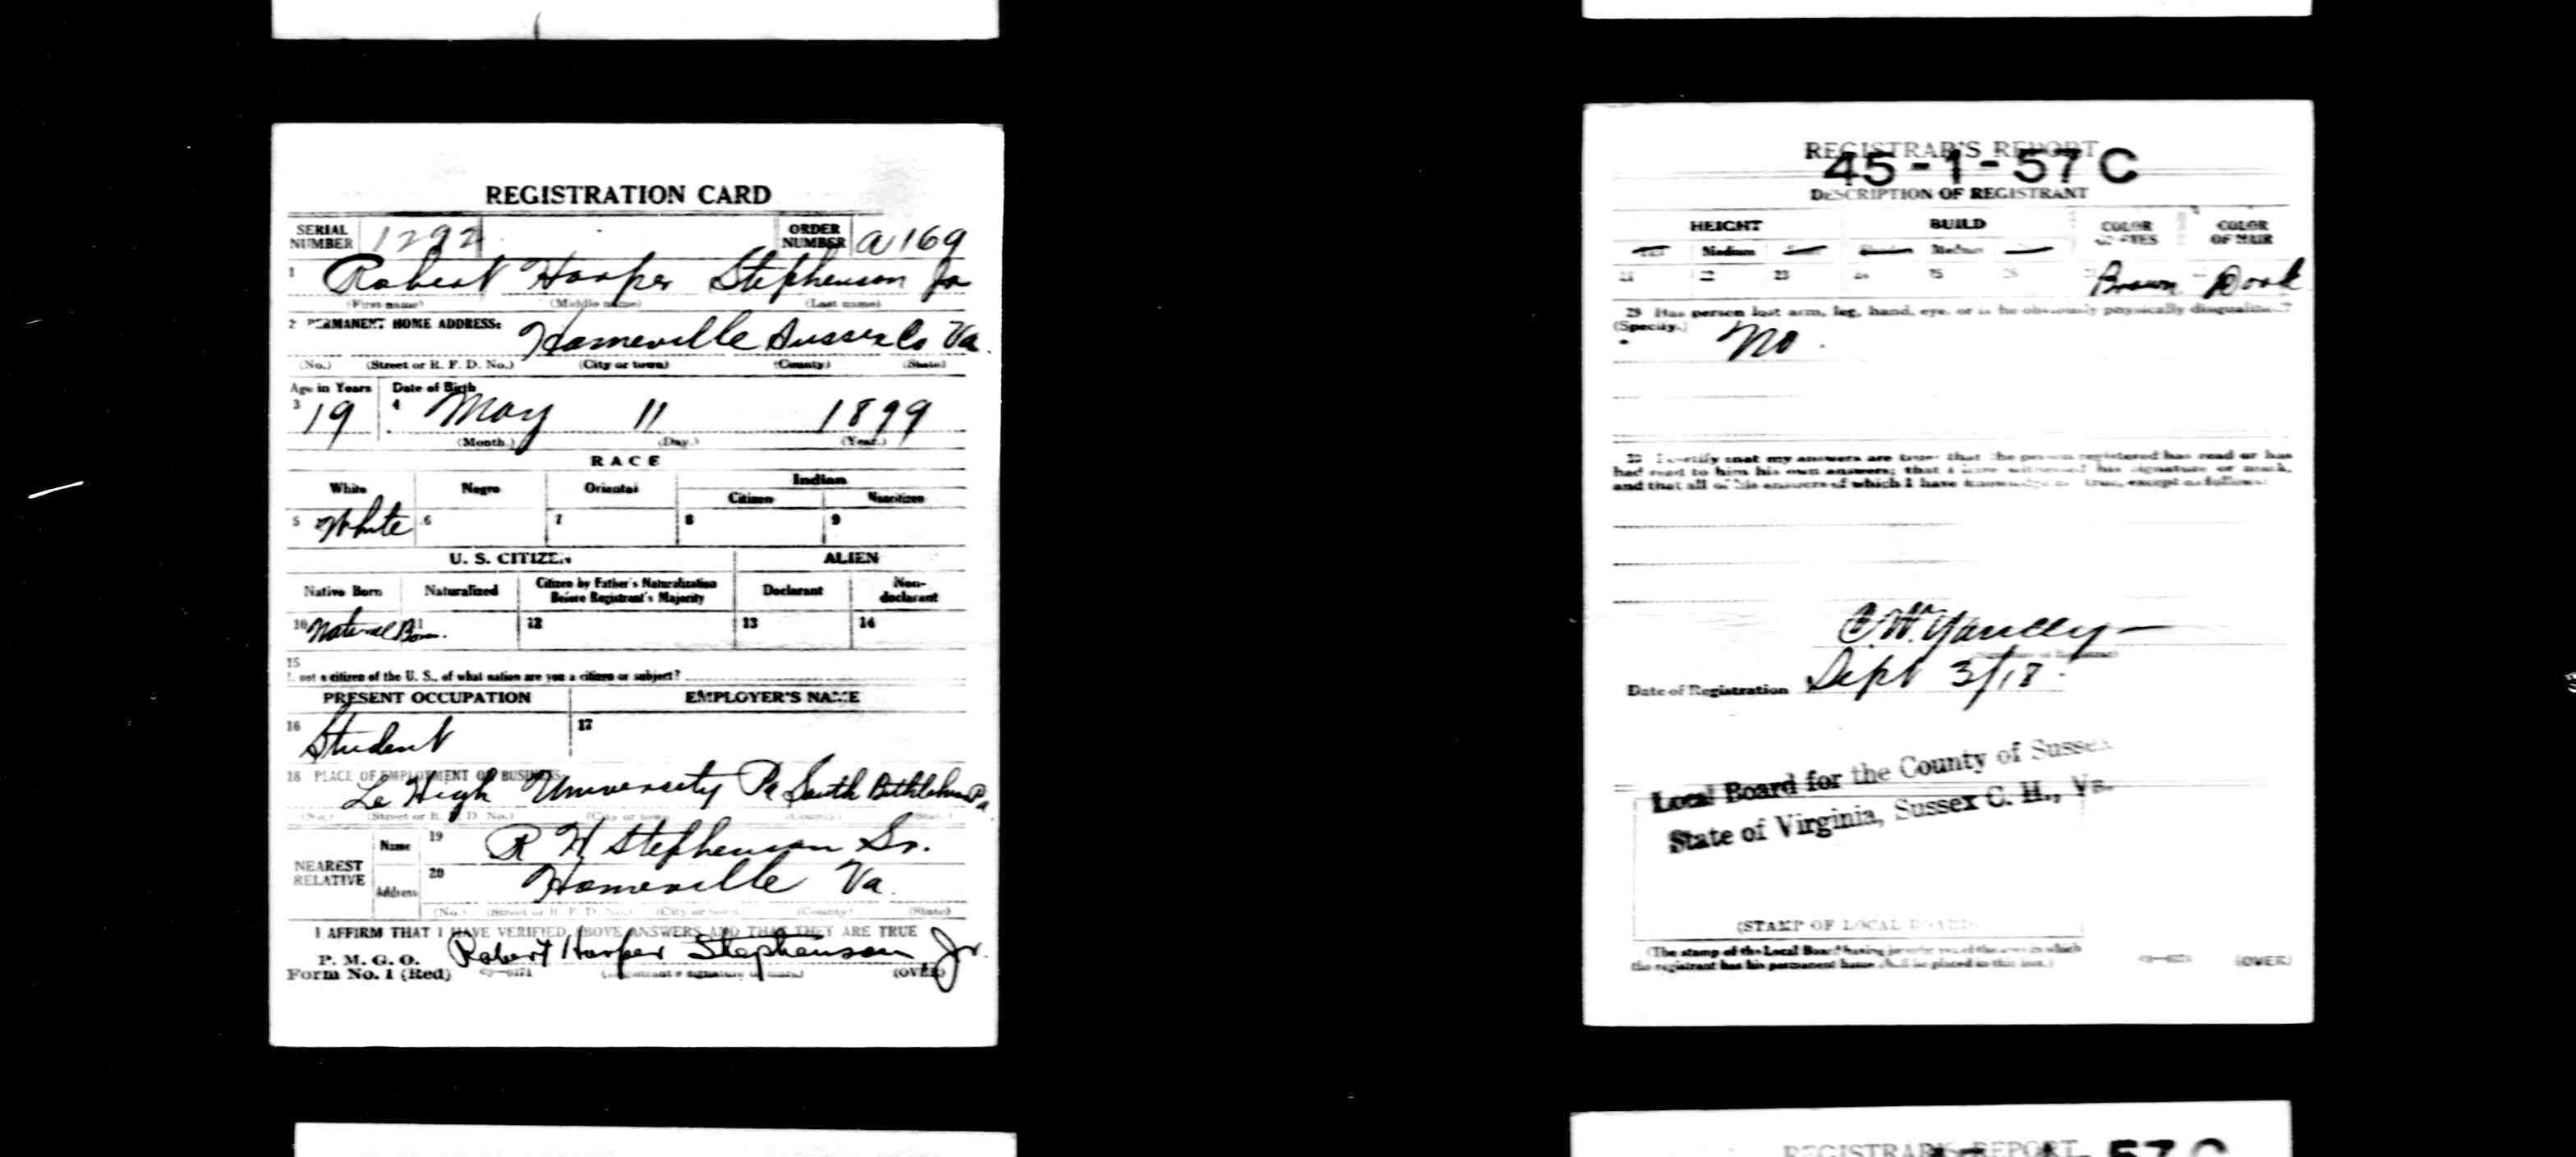 REGISTRATION CARD
SERIAL NUMBER 1292 ORDER NUMBER A169
1 Robert Harper Stephenson Jr
(First name) (Middle name) (Last name)
2 PERMANENT HOME ADDRESS:
Homeville Sussex Co Va.
(No.) (Street or R. F. D. No.) (City or town) (County) (State)
Age in Years Date of Birth
3 19 4 May 11 1899
(Month.) (Day.) (Year.)
RACE
White Negro Oriental Indian
Citizen Noncitizen
5 White 6 7 8 9
U. S. CITIZEN ALIEN
Native Born Naturalized Citizen by Father's Naturalization Before Registrant's Majority Declarant Non-declarant
10 Natural Born. 11 12 13 14
15
not a citizen of the U. S., of what nation are you a citizen or subject?
PRESENT OCCUPATION EMPLOYER'S NAME
16 Student 17
18 PLACE OF EMPLOYMENT OR BUSINESS:
Le High University Pa South Bethlehem Pa.
(No.) (Street or R. F. D. No.) (City or town) (County) (State)
NEAREST RELATIVE
Name 19 R H Stephenson Sr.
Address 20 Homeville Va.
(No.) (Street or R. F. D. No.) (City or town) (County) (State)
I AFFIRM THAT I HAVE VERIFIED ABOVE ANSWERS AND THAT THEY ARE TRUE
P. M. G. O.
Form No. 1 (Red) Robert Harper Stephenson Jr.
(Registrant's signature or mark) (OVER)
REGISTRAR'S REPORT
45-1-57 C
DESCRIPTION OF REGISTRANT
HEIGHT BUILD COLOR OF EYES COLOR OF HAIR
Medium Medium
21 22 23 24 25 26 Brown Dark
29 Has person lost arm, leg, hand, eye, or is he obviously physically disqualified?
(Specify.)
No.
30 I certify that my answers are true; that the person registered has read or has
had read to him his own answers; that I have witnessed his signature or mark,
and that all of his answers of which I have knowledge are true, except as follows:
C. W. Yancey
(Signature of Registrar)
Date of Registration Sept 3/18.
Local Board for the County of Sussex
State of Virginia, Sussex C. H., Va.
(STAMP OF LOCAL BOARD)
(The stamp of the Local Board having jurisdiction of the area in which
the registrant has his permanent home shall be placed in this box.)
(OVER)
REGISTRAR'S REPORT
57 C